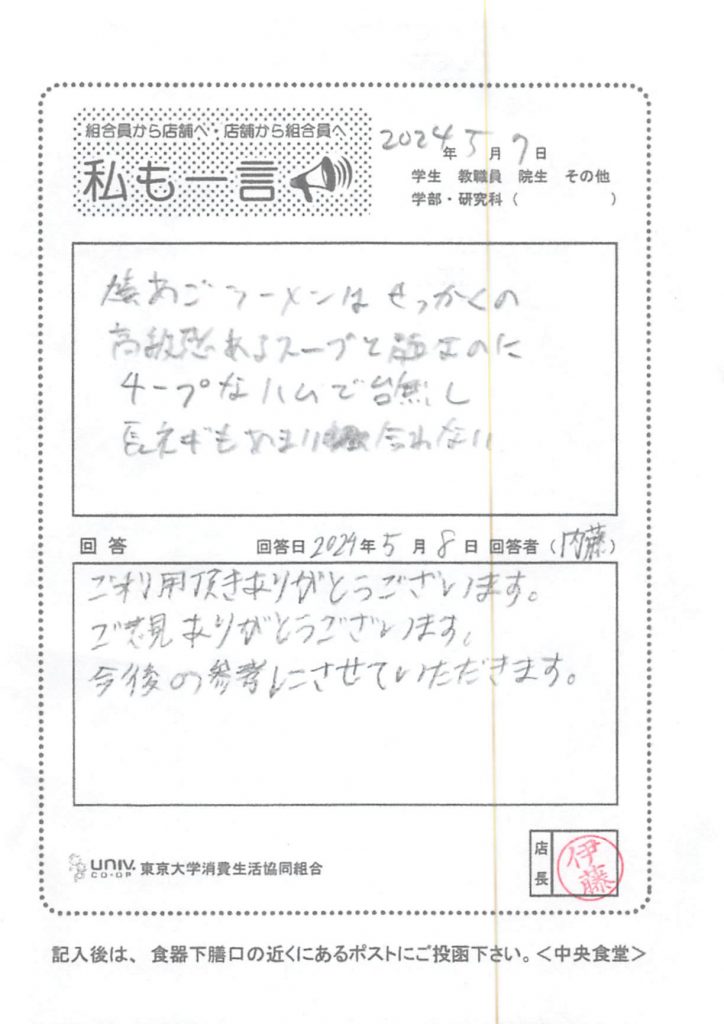 組合員から店舗へ・店舗から組合員へ
私も一言
2024年5月7日
学生 教職員 院生 その他
学部・研究科( )
あごラーメンはせっかくの
高級感あるスープと麺なのに
チープなハムで台無し
長ネギもあまり合わない
回答 回答日2024年5月8日 回答者(内藤)
ご利用頂きありがとうございます。
ご意見ありがとうございます。
今後の参考にさせていただきます。
UNIV. CO-OP 東京大学消費生活協同組合
店長 伊藤
記入後は、食器下膳口の近くにあるポストにご投函下さい。<中央食堂>